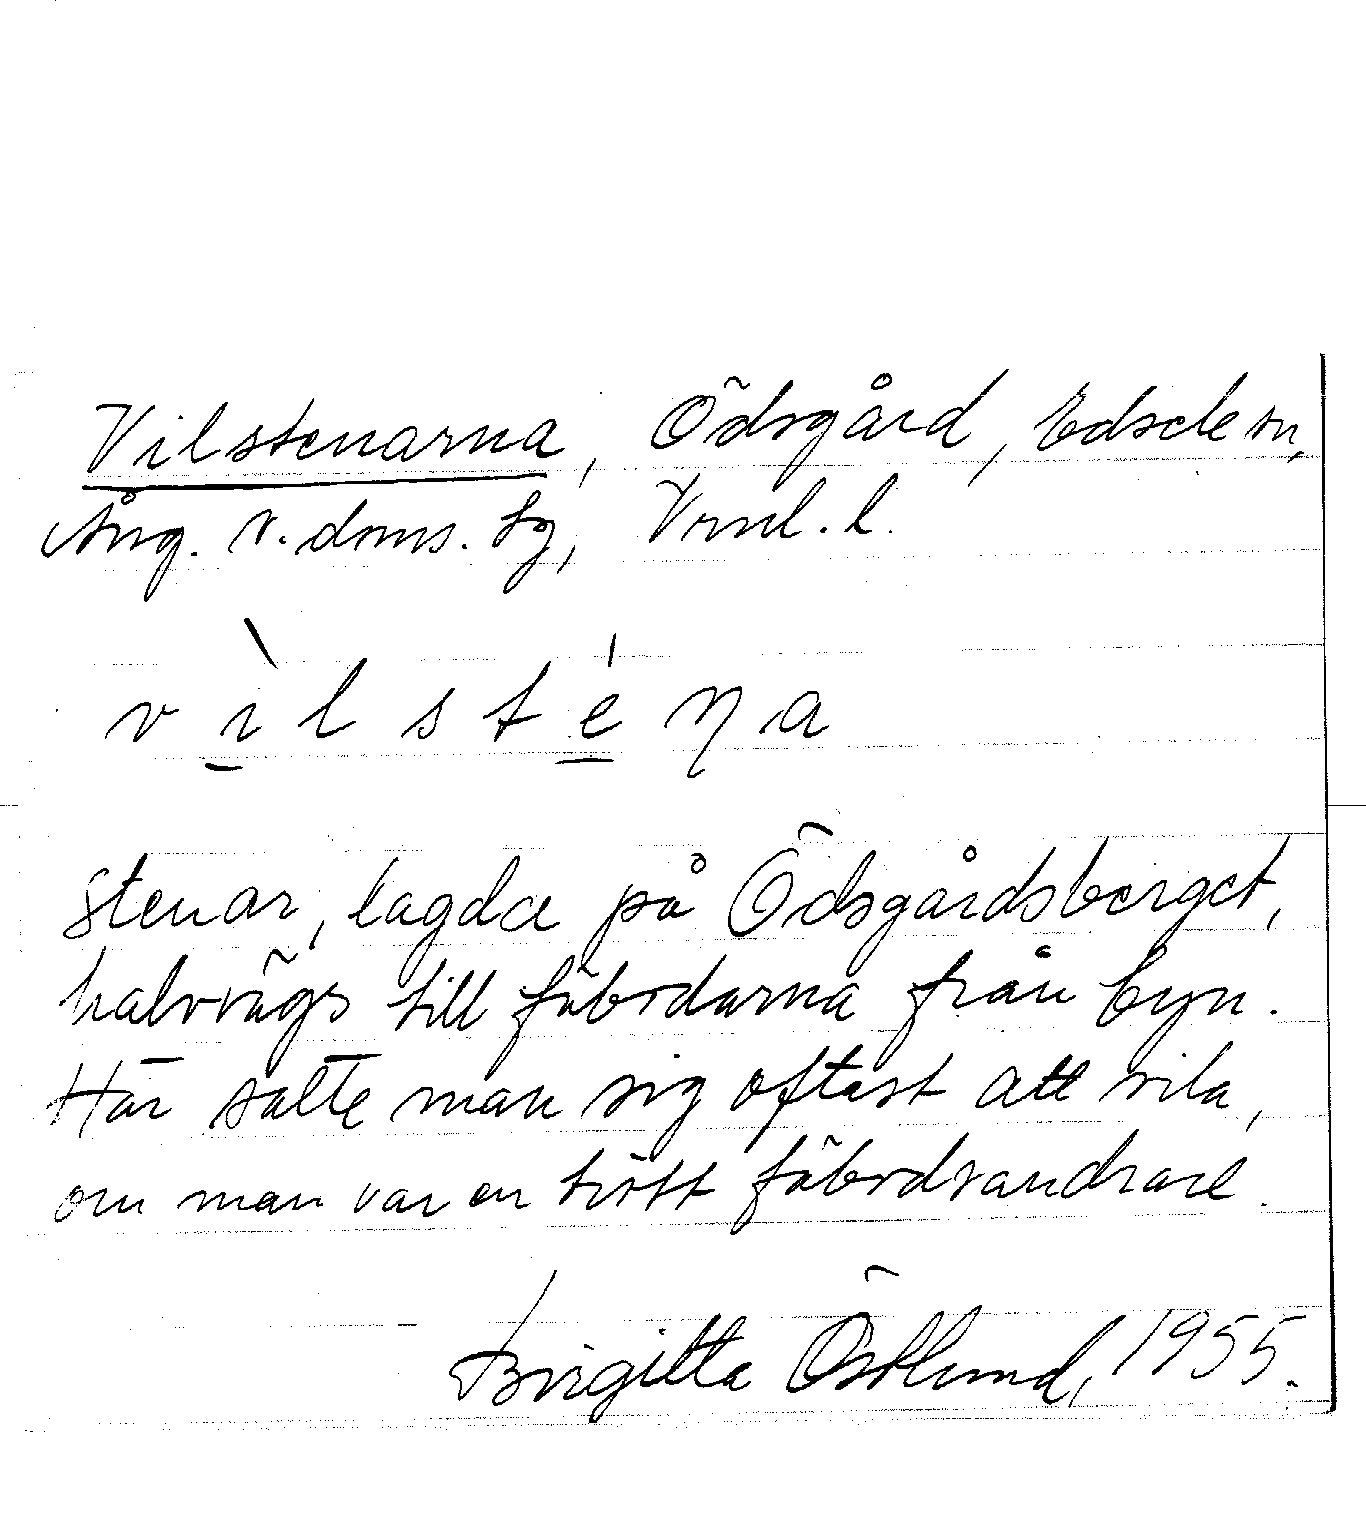 Vilstenarna, Ödsgård, Edsele sn,
Ång. v. doms. tg, Vrnl. l.
v ì l s t é ṇ a
stenar, lagda på Ödsgårdsberget,
halvvägs till fäbodarna från byn.
Här satte man sig oftast att vila,
om man var en trött fäbodvandrare.
Birgitta Östlund, 1955.